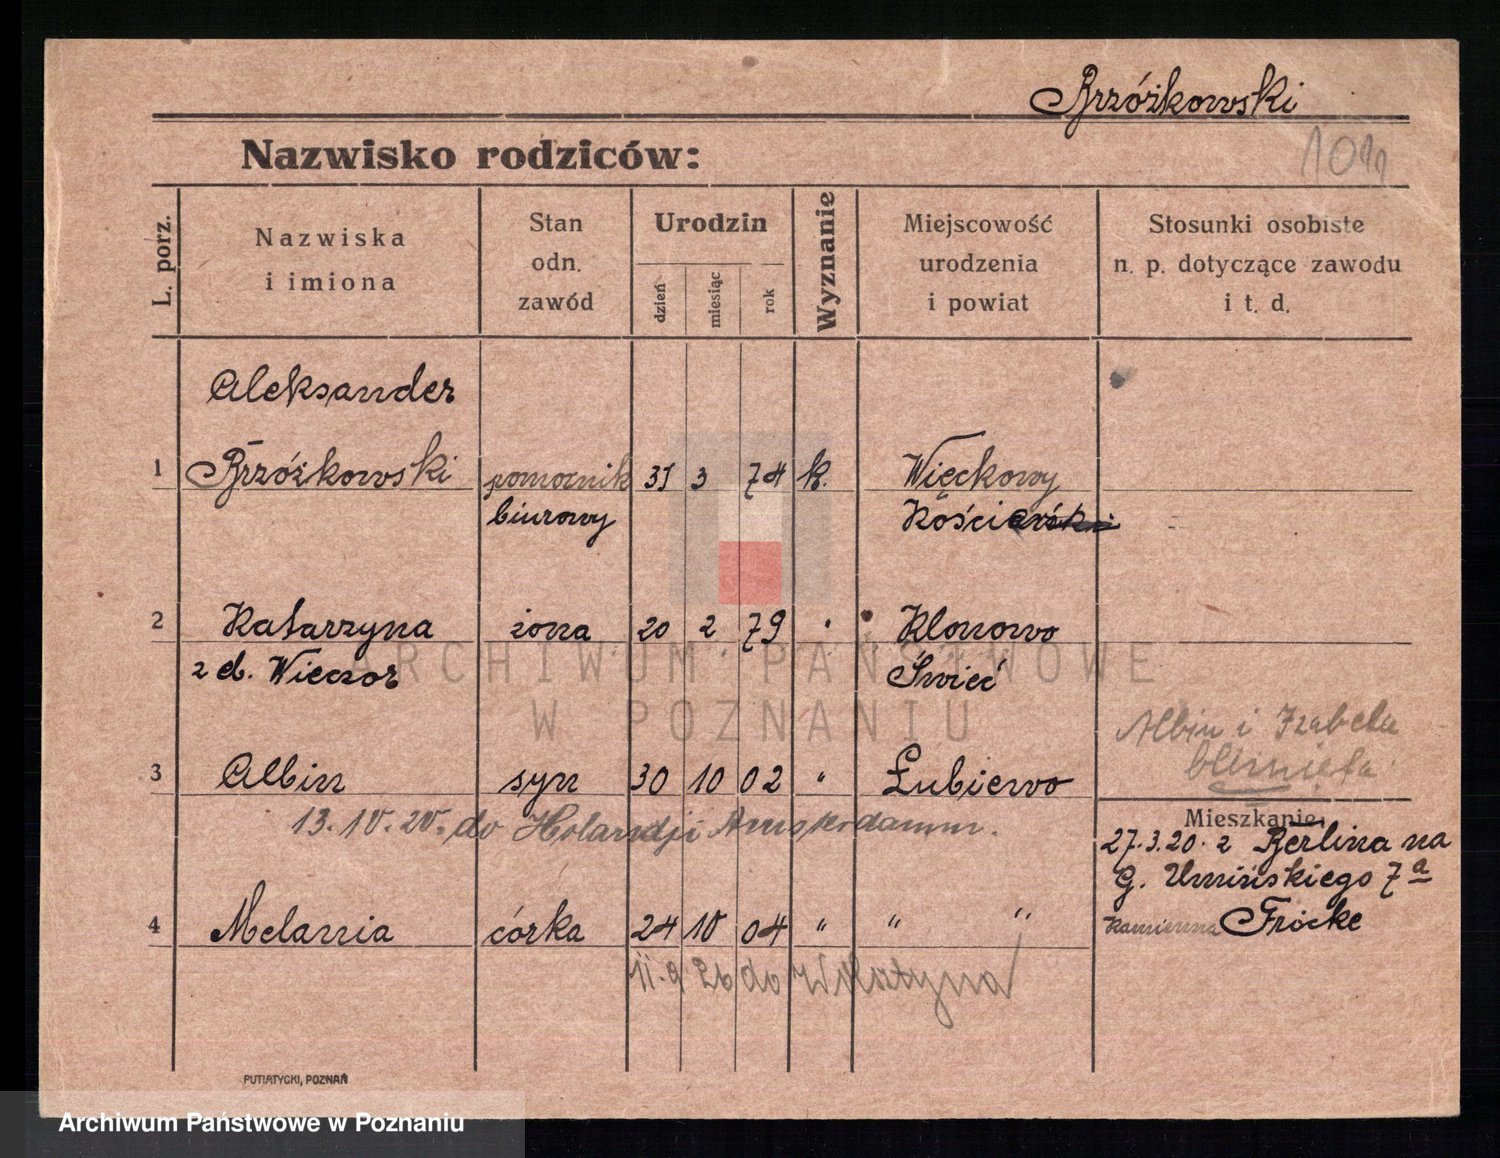 Brzóżkowski
Nazwisko rodziców:
L. porz.
Nazwiska
i imiona
Stan
odn.
zawód
Urodzin
dzień
miesiąc
rok
Wyznanie
Miejscowość
urodzenia
i powiat
Stosunki osobiste
n. p. dotyczące zawodu
i t. d.
Aleksander
1 Brzóżkowski pomocnik 3 74 k. Więckowy
biurowy
2 Katarzyna żona 20 2 79 " Klonowo
z d. Wieczor Świeć
Albin i Izabela
bliźnięta
3 Albin syn 30 10 02 " Łubiewo
13. IV. 20. do Holandji Amsterdamm.
Mieszkanie
27.3.20. z Berlina na
G. Umińskiego 7a
Kamienna Fröcke
4 Melania córka 24 10 04 " " "
do Wolsztyna
PUTIATYCKI, POZNAŃ
ARCHIWUM PAŃSTWOWE
W POZNANIU
Archiwum Państwowe w Poznaniu